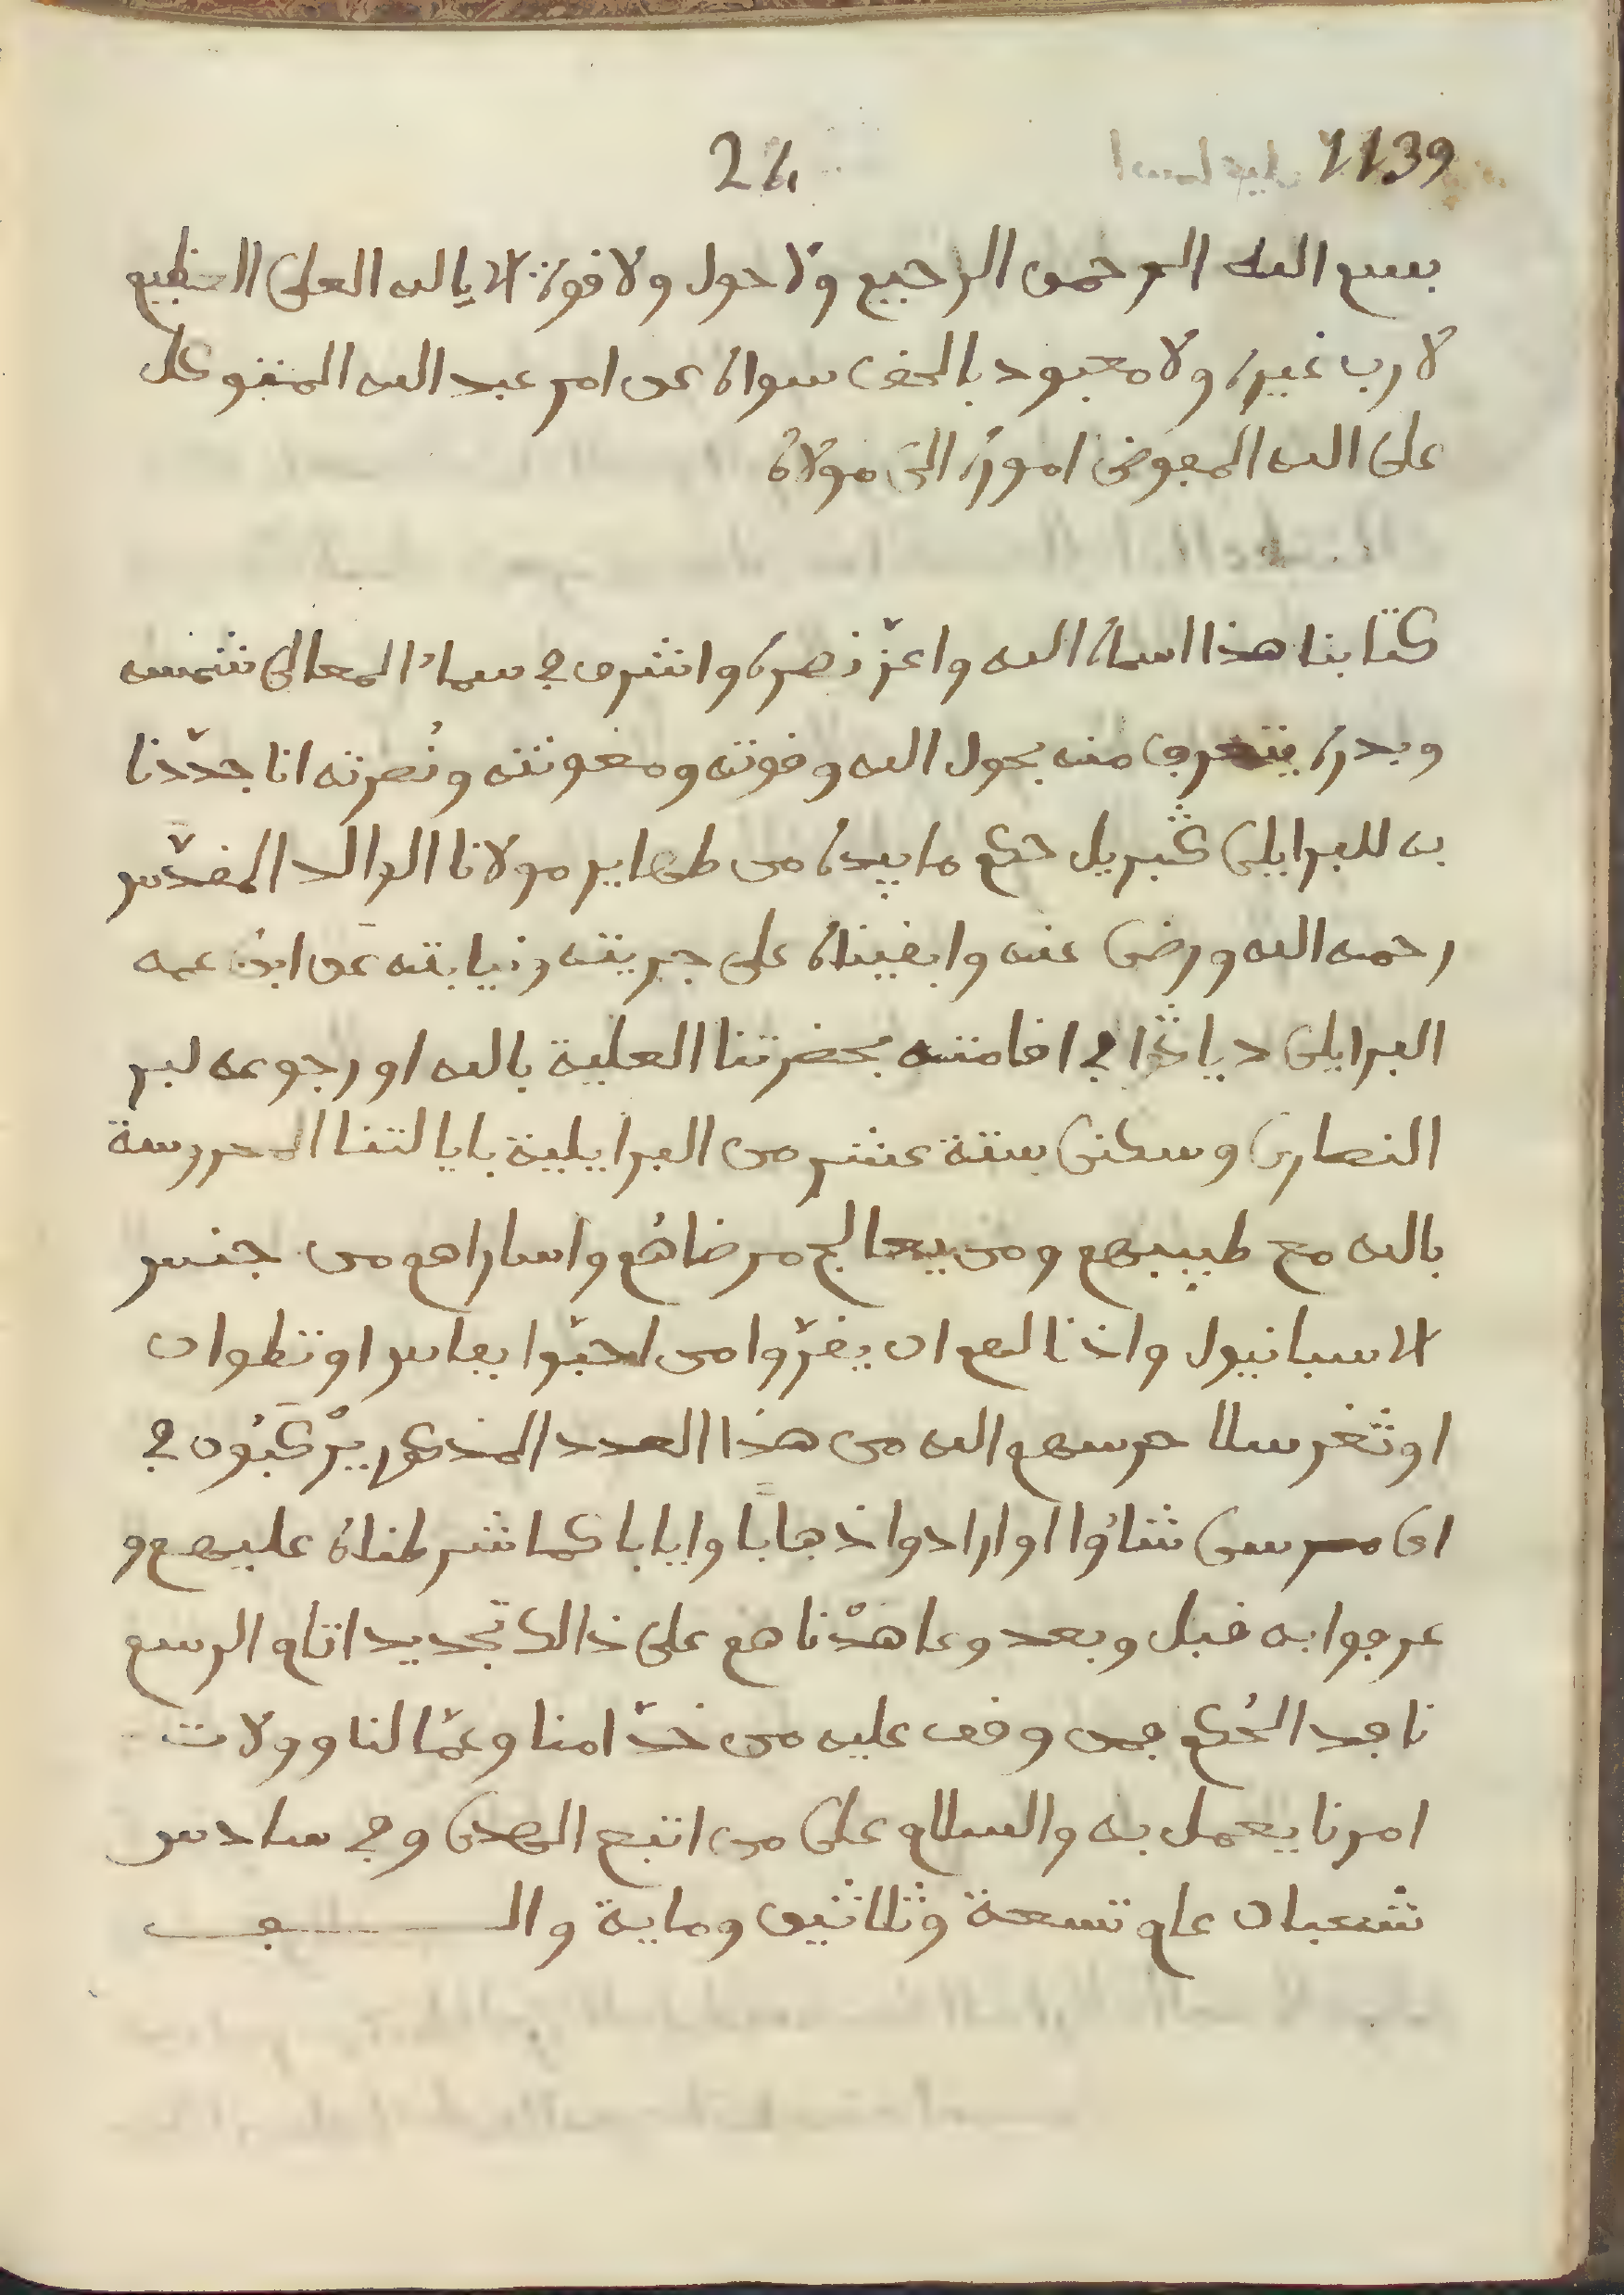 1139
24
بسم الله الرحمن الرحيم ولا حول ولا قوة الا بالله العلى العظيم
لا رب غيره ولا معبود بالحق سواه عن امر عبد الله المتوكل
على الله المفوض اموره الى مولاه
كتابنا هذا اسماه الله واعزّ نصره واشرق في سماء المعالى شمسه
وبدره يتعرف منه بحول الله وقوته ومعونته ونُصرته اننا جدّدنا
به للبرايلى كبريل حكم ما بيده من ظهاير مولانا الوالد المقدّس
رحمه الله ورضى عنه وابقيناه على حريته ونيابته عن ابن عمه
البرايلى دياكُا في اقامته بحضرتنا العلية بالله او رجوعه لبر
النصارى وسكنى ستة عشر من البرايلية بايالتنا المحروسة
بالله مع طبيبهم ومن يعالج مرضاهُم واساراهم من جنس
الاسبانيول واذنا لهم ان يقرّوا من احبّوا بفاس او تطوان
او ثغر سلا حرسهم الله من هذا العدد المذكور يرْكبُون في
اى مرسى شاءُوا او ارادوا ذهابًا وايابا كما شرطناه عليهم و
عرفوا به قبل وبعد وعاهدْناهم على ذالك تجديدا تام الرسم
نافد الحُكم فمن وقف عليه من خدّامنا وعمّالنا وولات
امرنا يعمل به والسلام على من اتبع الهدى وفي سادس
شعبان عام تسعة وثلاثين وماية والـــــف